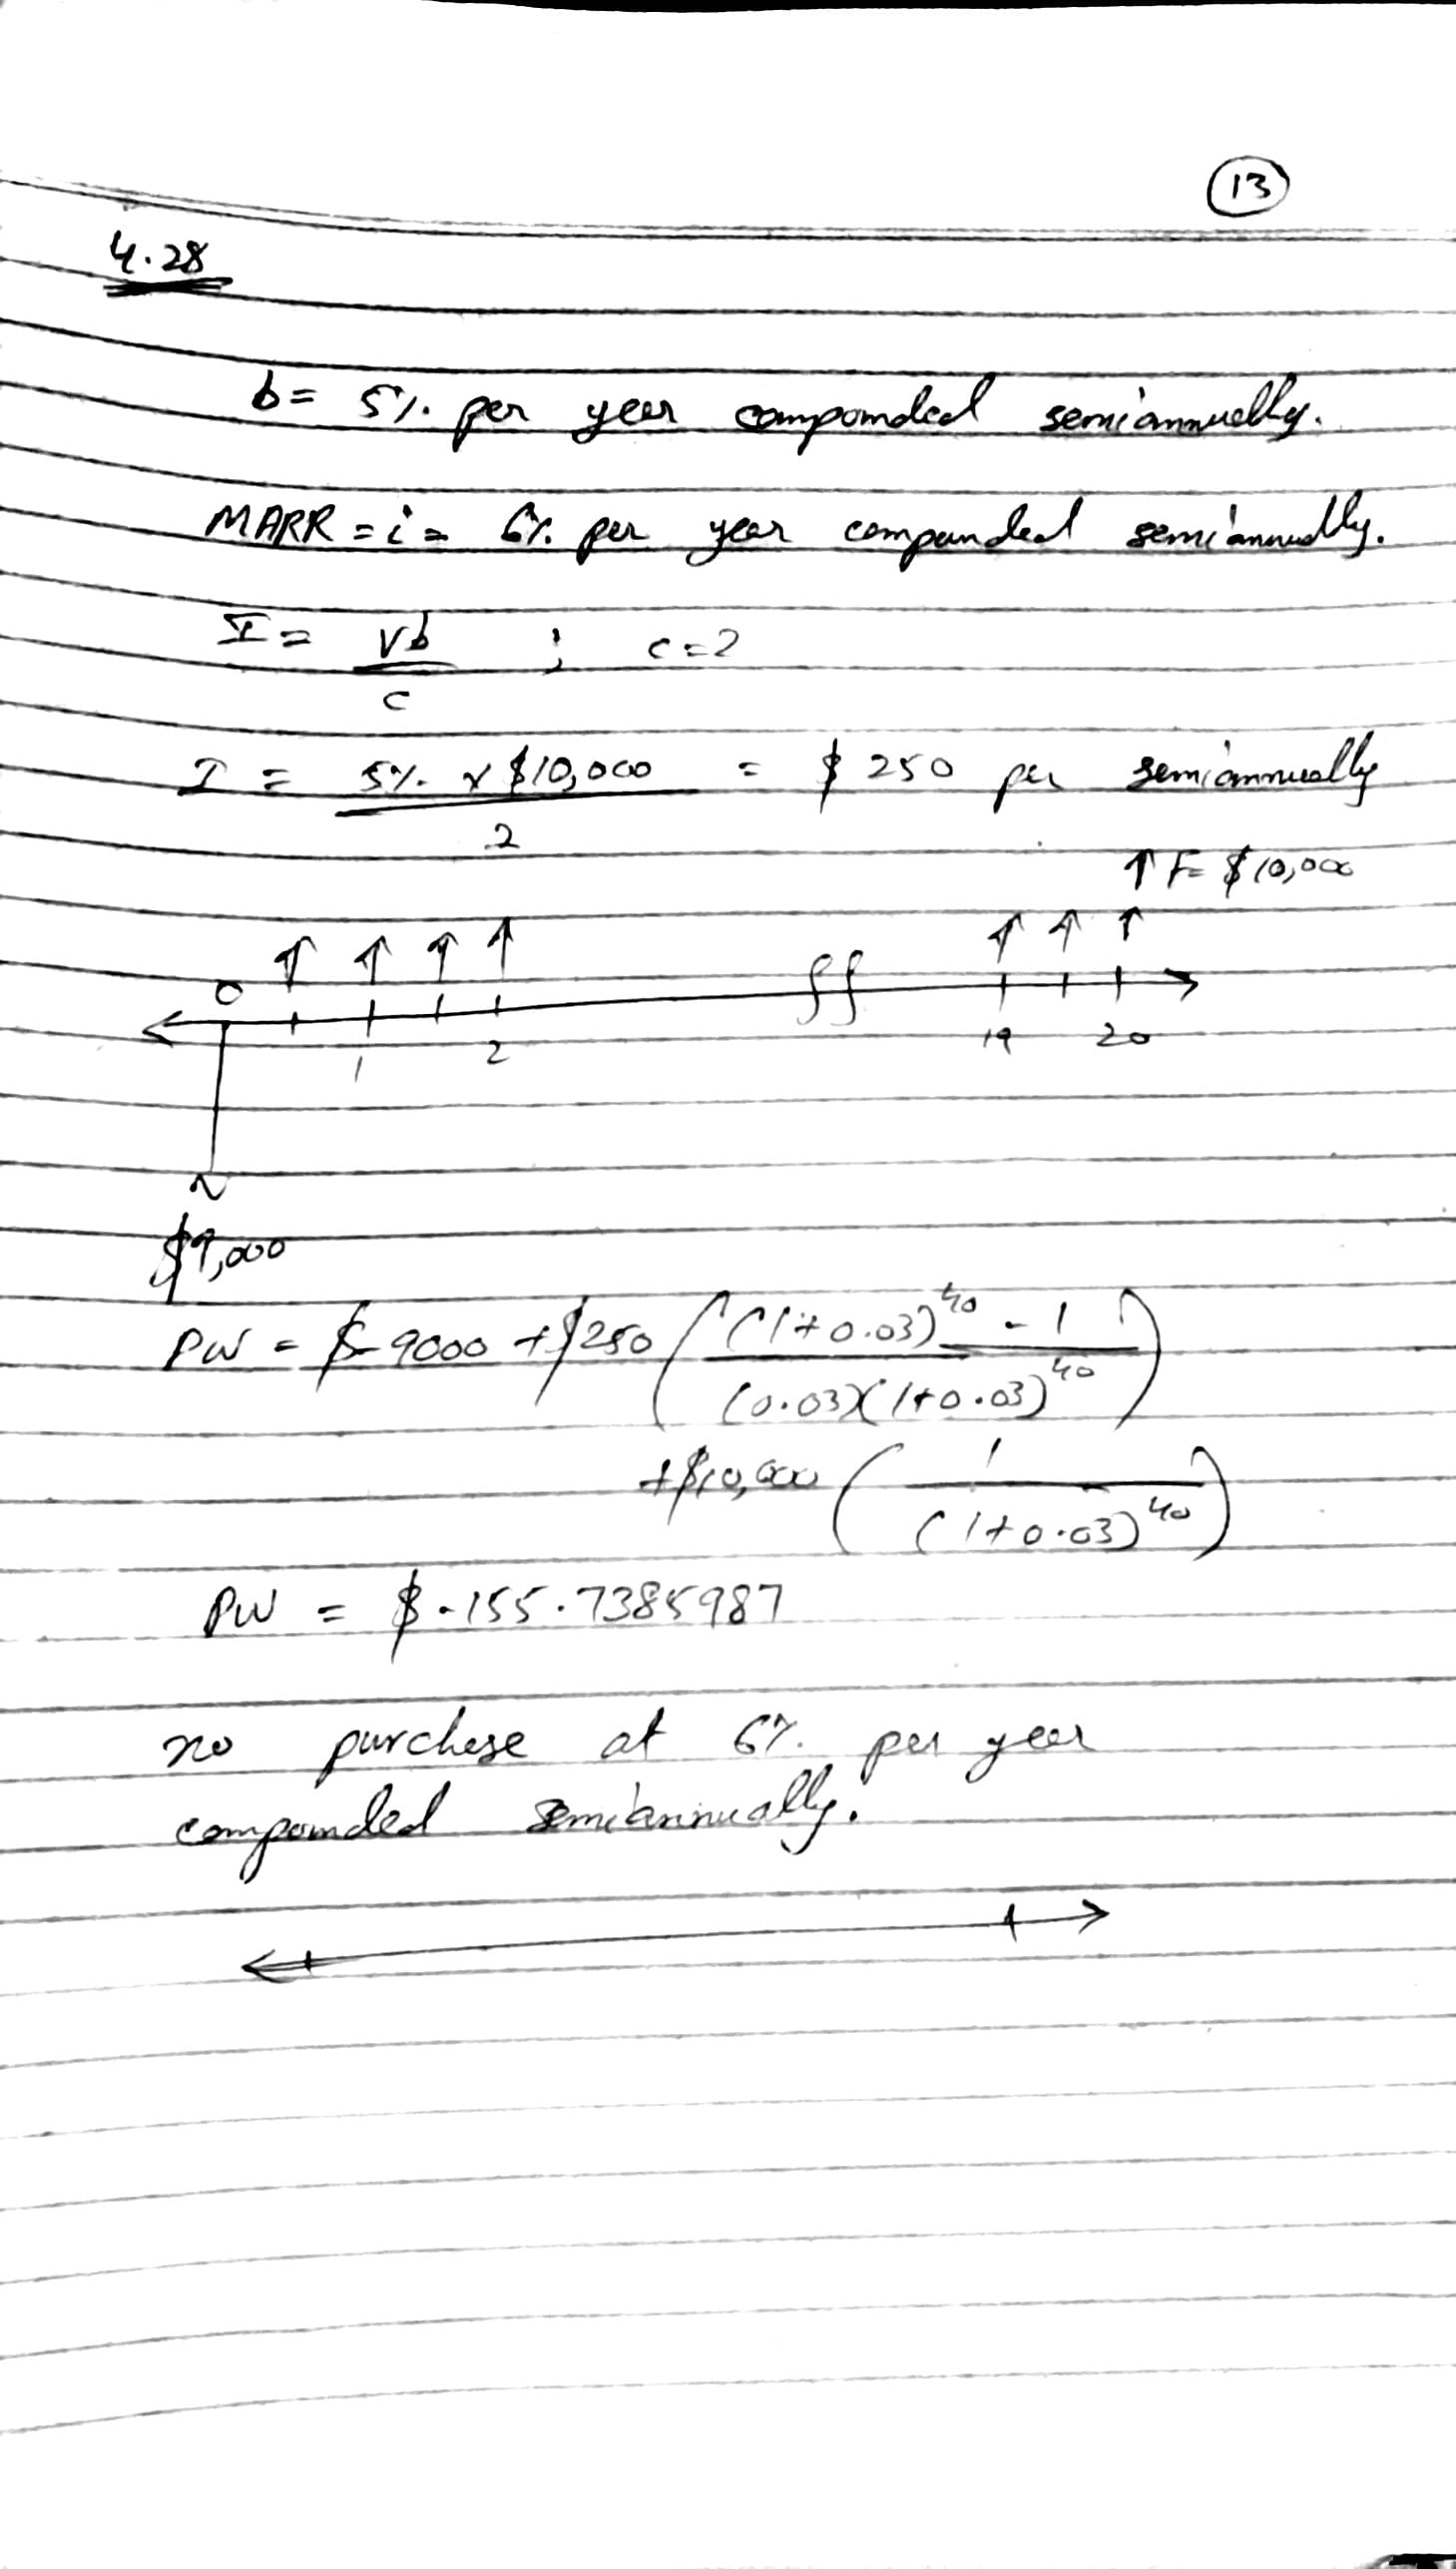 13
4.28
b= 5% per year compounded semiannually.
MARR = i = 6% per year compounded semiannually.
I = Vb / c ; c=2
I = 5% x $10,000 / 2 = $ 250 per semiannually
↑ F= $10,000
0 1 2 19 20
$9,000
PW = $-9000 + $250 ( (1+0.03)^40 - 1 / (0.03)(1+0.03)^40 )
+$10,000 ( 1 / (1+0.03)^40 )
PW = $-155.7385987
no purchase at 6% per year
compounded semiannually.